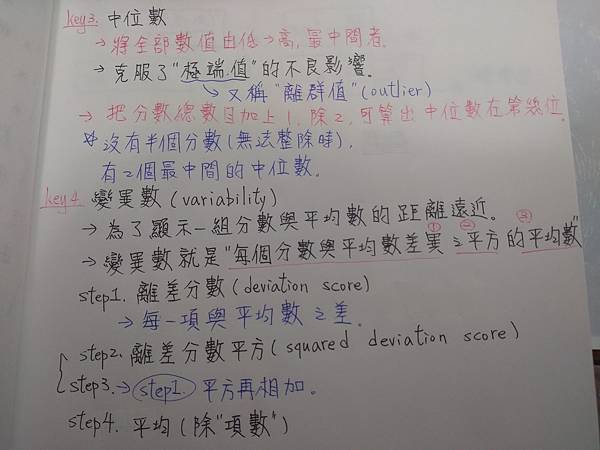 key3. 中位數
→將全部數值由低→高,最中間者.
→克服了"極端值"的不良影響.
↘又稱"離群值"(outlier)
→把分數總數目加上1,除2,可算出中位數在第幾位.
*沒有半個分數(無法整除時),
有2個最中間的中位數.
key4. 變異數(variability)
→為了顯示一組分數與平均數的距離遠近。
→變異數就是"每個分數與平均數差異①之平方②的平均數③"
step1. 離差分數(deviation score)
→每一項與平均數之差.
step2. 離差分數平方(squared deviation score)
step3.→step1.平方再相加。
step4. 平均(除"項數")